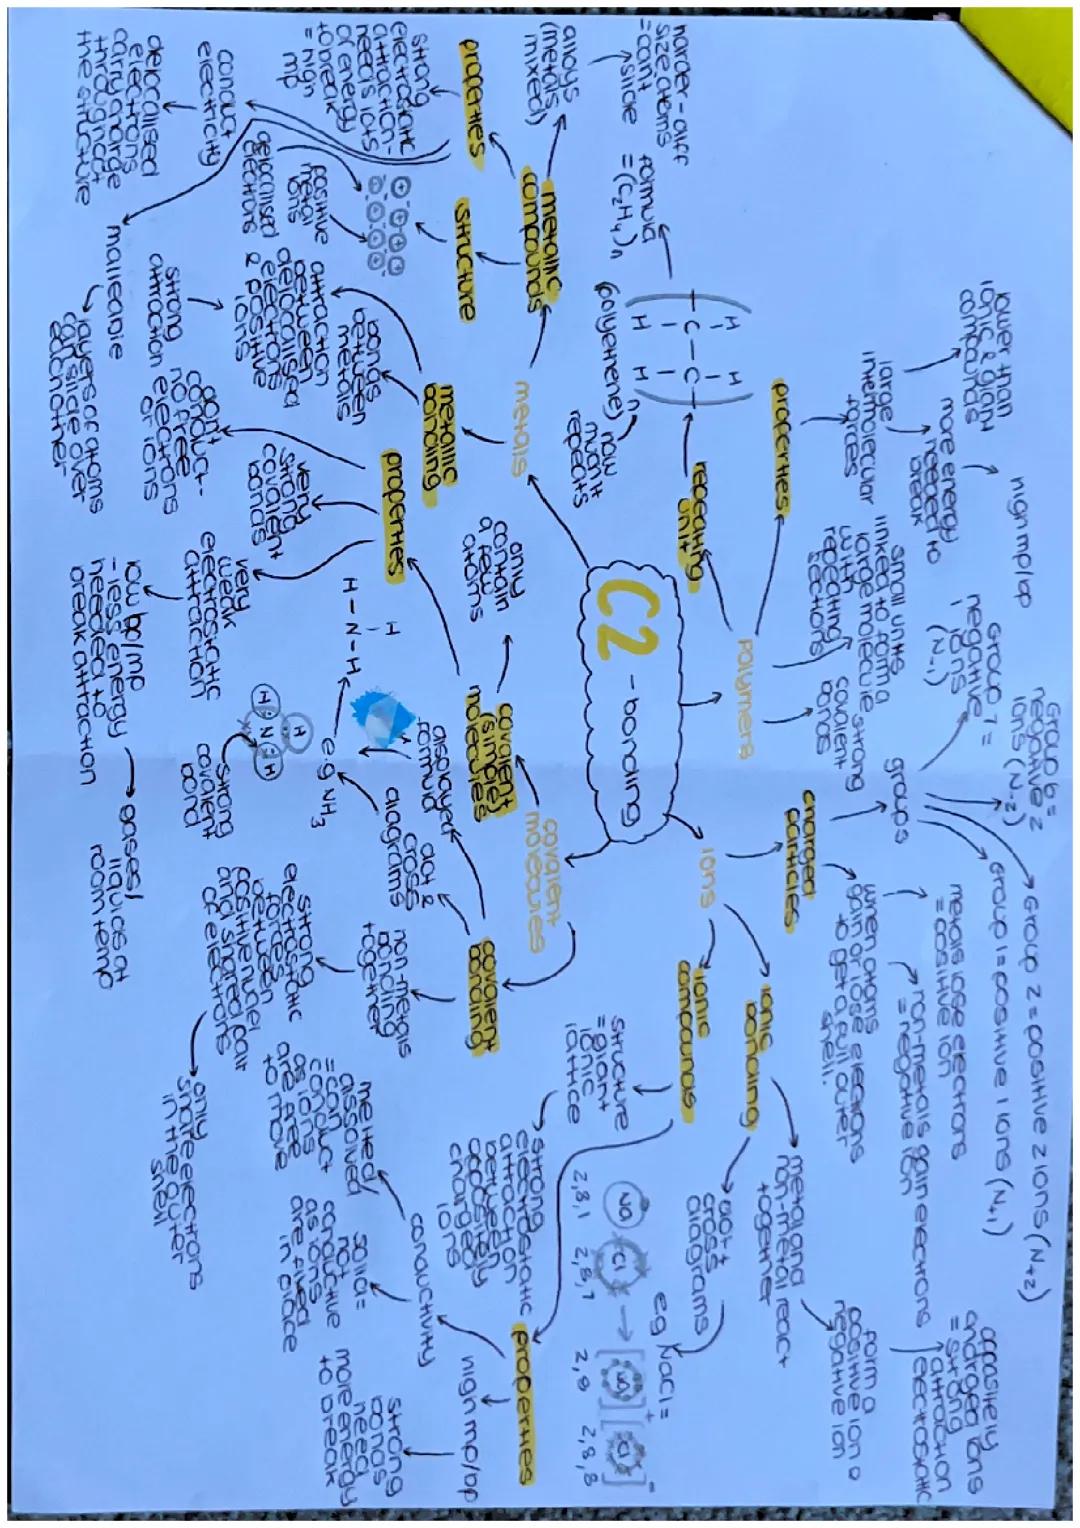 C2 - bonding
polymers
properties
large
intermolecular
forces
lower than
ionic & giant
compounds
more energy
needed to
break
high mp/bp
repeating
unit
H H
( - C - C - )
H H n
(polyethene)
how
many it
repeats
formula
= (C2H4)n
small units
linked to form a
large molecule
with
repeating
sections
strong
covalent
bonds
ions
charged
particles
groups
Group 6 =
negative 2
ions (N-2)
Group 7 =
negative
ions
(N-1)
Group 2 = positive 2 ions (N+2)
Group 1 = positive 1 ions (N+1)
when atoms
gain or lose electrons
to get a full outer
shell.
metals lose electrons
= positive ion
non-metals gain electrons
= negative ion
ionic
bonding
metal and
non-metal react
together
form a
positive ion &
negative ion
oppositely
charged ions
= strong
electrostatic
attraction
dot &
cross
diagrams
e.g NaCl =
Na Cl → [Na]+ [Cl]-
2,8,1 2,8,7 2,8 2,8,8
ionic
compounds
structure
= giant
ionic
lattice
strong
electrostatic
attraction
between
oppositely
charged
ions
properties
high mp/bp
strong
bonds
need
more energy
to break
conductivity
melted/
dissolved
= can
conduct
as ions
are free
to move
solid =
not
conductive
as ions
are fixed
in place
covalent
molecules
covalent
bonding
non-metals
bonding
together
strong
electrostatic
forces
between
positive nuclei
and shared pair
of electrons
only
share electrons
in the outer
shell
dot &
cross
diagrams
displayed
formula
e.g NH3
H
H - N - H
H
H N H
strong
covalent
bond
covalent
(simple)
molecules
only
contain
a few
atoms
properties
don't
conduct -
no free
electrons
or ions
very
strong
covalent
bonds
very
weak
electrostatic
attraction
low bp/mp
- less energy
needed to
break attraction
gases/
liquids at
room temp
metals
metallic
bonding
bonds
between
metals
attraction
between
delocalised
electrons
& positive
ions
strong
attraction
metallic
compounds
alloys
(metals
mixed)
harder - diff
size atoms
= can't
slide
structure
positive
metal
ions
delocalised
electrons
properties
strong
electrostatic
attraction -
needs lots
of energy
to break
= high
mp
conduct
electricity
delocalised
electrons
carry charge
throughout
the structure
malleable
layers of atoms
can slide over
eachother